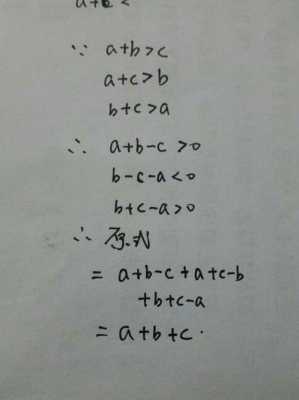 a+b<
∵ a+b>c
a+c>b
b+c>a
∴ a+b-c >0
b-c-a<0
b+c-a>0
∴ 原式
= a+b-c+a+c-b
+b+c-a
= a+b+c.